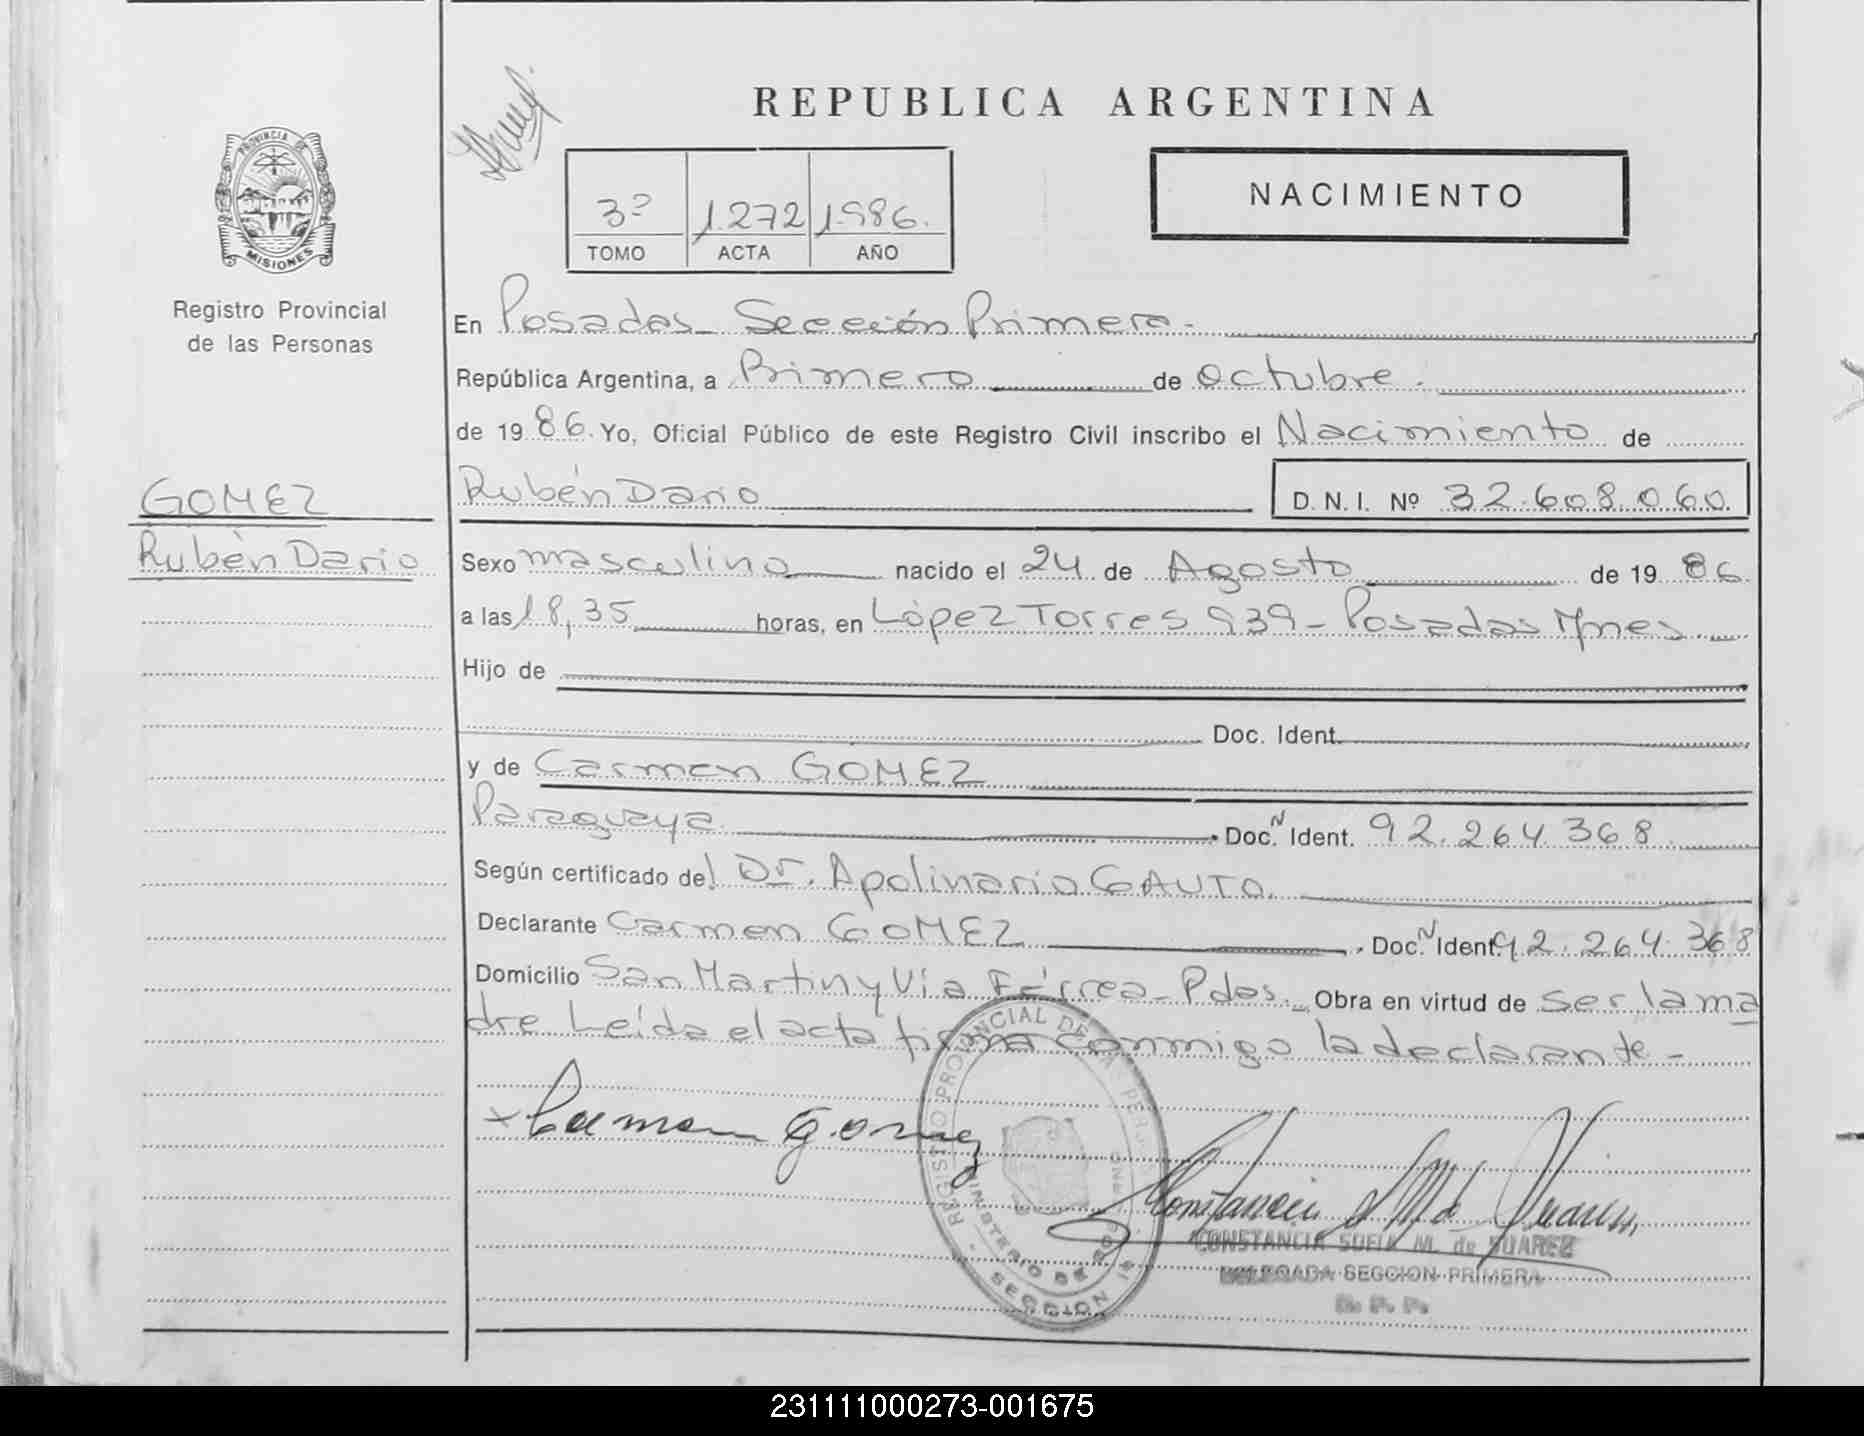 REPUBLICA ARGENTINA
PROVINCIA DE
MISIONES
Registro Provincial
de las Personas
3º 1.272 1.986.
TOMO ACTA AÑO
NACIMIENTO
En Posadas - Sección Primera -
República Argentina, a Primero de Octubre.
de 19 86. Yo, Oficial Público de este Registro Civil inscribo el Nacimiento de
GOMEZ
Rubén Dario
Rubén Dario D.N.I. Nº 32.608.060.
Sexo masculino nacido el 24 de Agosto de 19 86.
a las 18,35 horas, en López Torres 939 - Posadas Mnes.
Hijo de
Doc. Ident.
y de Carmen GOMEZ
Paraguaya Doc. N Ident. 92.264.368
Según certificado del Dr. Apolinario GAUTO.
Declarante Carmen GOMEZ Doc. N Ident. 92.264.368
Domicilio San Martin y Vía Férrea - Pdas. Obra en virtud de ser la ma
dre Leída el acta firma conmigo la declarante -
x Carmen Gomez
REGISTRO PROVINCIAL DE LAS PERSONAS
MINISTERIO DE GOBIERNO
SECCION 1ª
Constancia S M de Suarez
CONSTANCIA SOFIA M. de SUAREZ
DELEGADA SECCION PRIMERA
R. P. P.
231111000273-001675